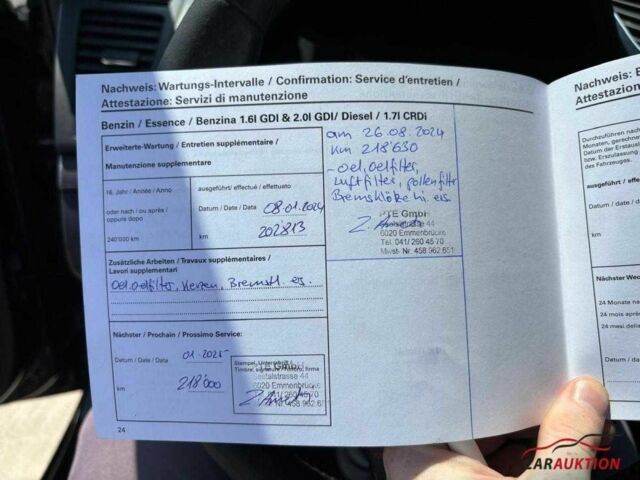 Nachweis: Wartungs-Intervalle / Confirmation: Service d'entretien /
Attestazione: Servizi di manutenzione
Benzin / Essence / Benzina 1.6l GDI & 2.0l GDI/ Diesel / 1.7l CRDi
Erweiterte-Wartung / Entretien supplémentaire /
Manutenzione supplementare
16. Jahr / Année / Anno
oder nach / ou après /
oppure dopo
240'000 km
ausgeführt / effectué / effettuato
Datum / Date / Data 08.01.2024
km 202813
Zusätzliche Arbeiten / Travaux supplémentaires /
Lavori supplementari
Oel, oelfilter, Kerzen, Bremsfl. ers.
Nächster / Prochain / Prossimo Service:
Datum / Date / Data 01.2025
km 218'000
Stempel, Unterschrift
PTE GmbH
Seetalstrasse 44
6020 Emmenbrücke
Tel. 041/ 260 45 70
Mwst- Nr. 458.962.651
24
am 26.08.2024
km 218'630
- oel, oelfilter,
Luftfilter, pollenfilter
Bremsklötze hi. ers.
PTE GmbH
Seetalstrasse 44
6020 Emmenbrücke
Tel. 041/ 260 45 70
Mwst- Nr. 458.962.651
Nachweis:
Attestazione
Durchzuführen nach
Monaten, gerechnet
Datum der Erstaus
bzw. Erstzulassung
des Fahrzeuges.
ausgeführt / effect
Datum / Date / Data
km
Nächsten Wec
24 Monate na
24 mois après
24 mesi della
km
CARAUKTION